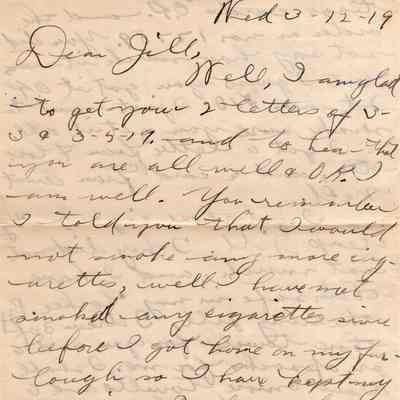 Wed 3-12-19
Dear Jill,
Well, I am glad
to get your 2 letters of 3-
3 & 3-5-19. and to hear that
you are all well & O.K. I
am well. You remember
I told you that I would
not smoke any more cig-
arettes, well I have not
smoked any cigarettes since
before I got home on my fur-
lough so I have kept my